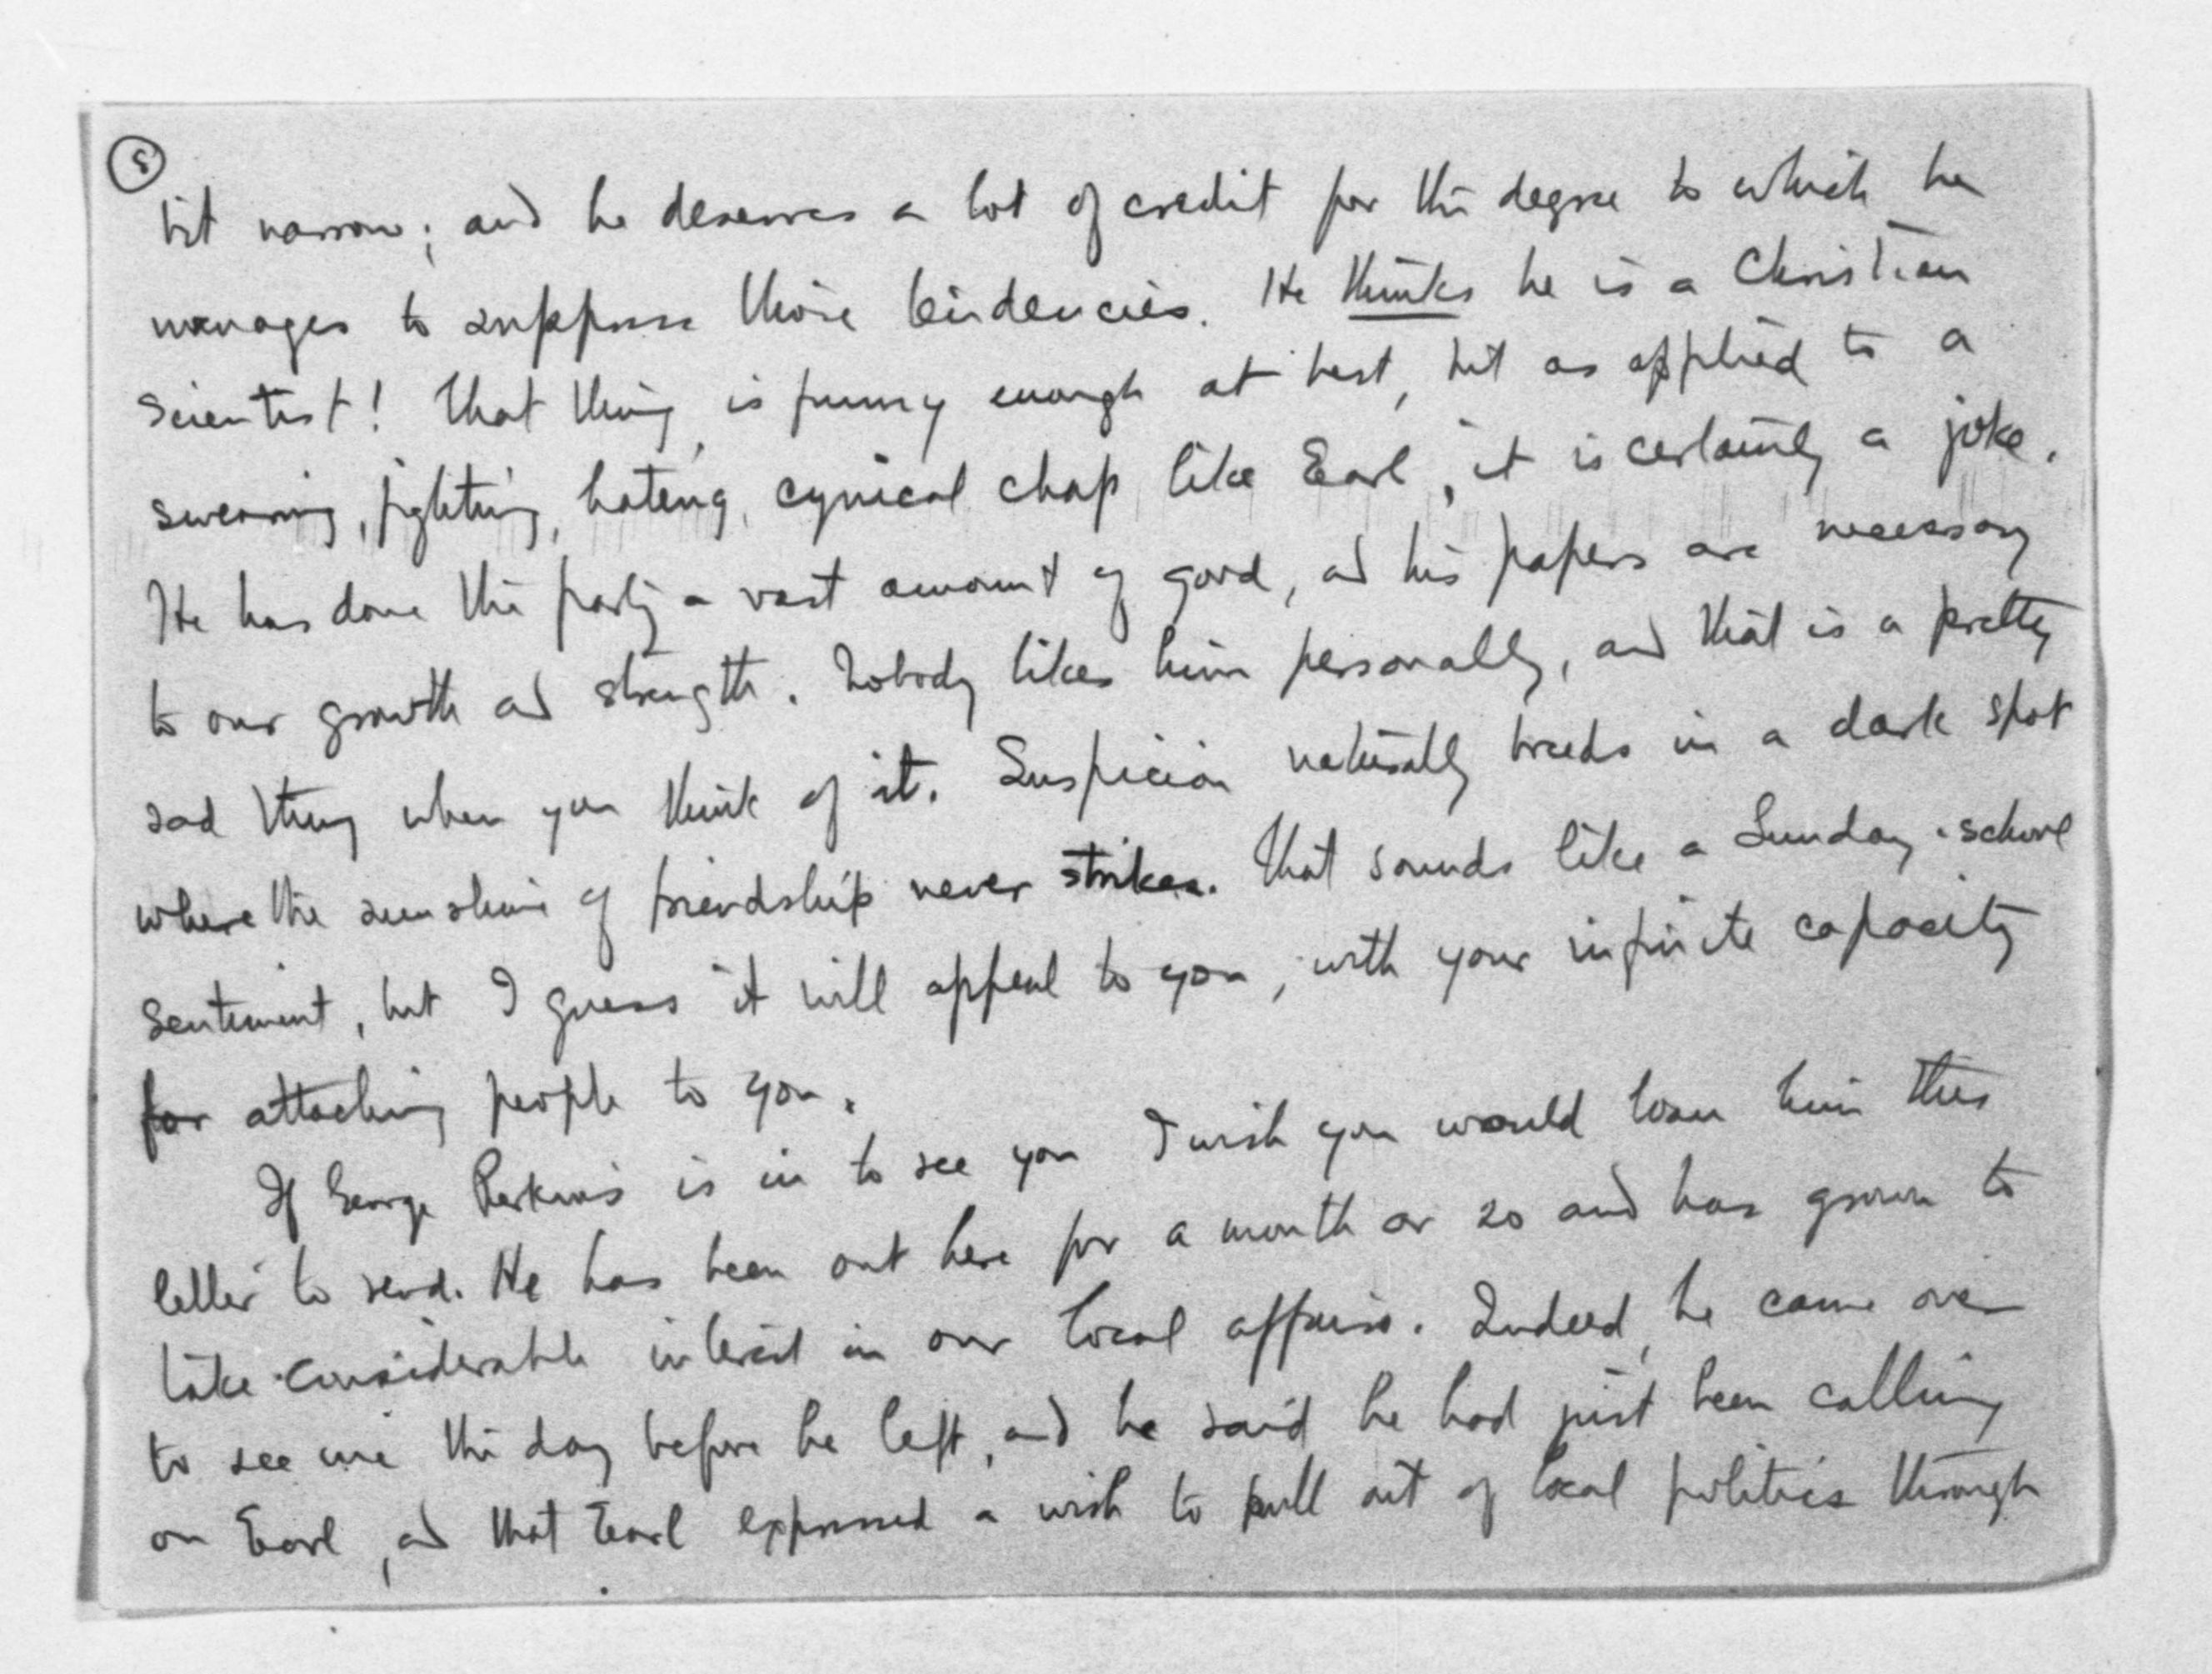 5
bit narrow; and he deserves a lot of credit for the degree to which he
manages to suppress those tendencies. He thinks he is a Christian
Scientist! That thing is funny enough at best, but as applied to a
swearing, fighting, hating, cynical chap like Earl, it is certainly a joke.
He has done the party a vast amount of good, and his papers are necessary
to our growth and strength. Nobody likes him personally, and that is a pretty
sad thing when you think of it. Suspicion naturally breeds in a dark spot
where the sunshine of friendship never strikes. That sounds like a Sunday-school
sentiment, but I guess it will appeal to you, with your infinite capacity
for attaching people to you.
If George Perkins is in to see you I wish you would loan him this
letter to read. He has been out here for a month or so and has grown to
take considerable interest in our local affairs. Indeed, he came over
to see me the day before he left, and he said he had just been calling
on Earl, and that Earl expressed a wish to pull out of local politics through